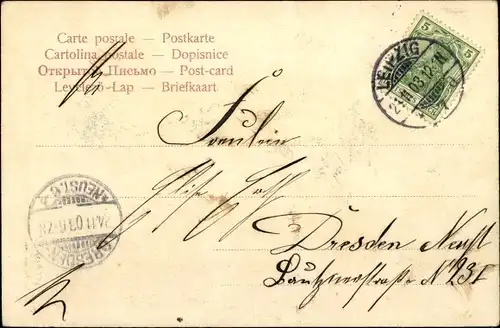 Carte postale — Postkarte
Cartolina postale — Dopisnice
Открытое Письмо — Post-card
Levelező-Lap — Briefkaart
5 5
LEIPZIG
Fräulein
Dresden Neust
Bautznerstraße N° 23I
DRESDEN
NEUST.
24.11.03.